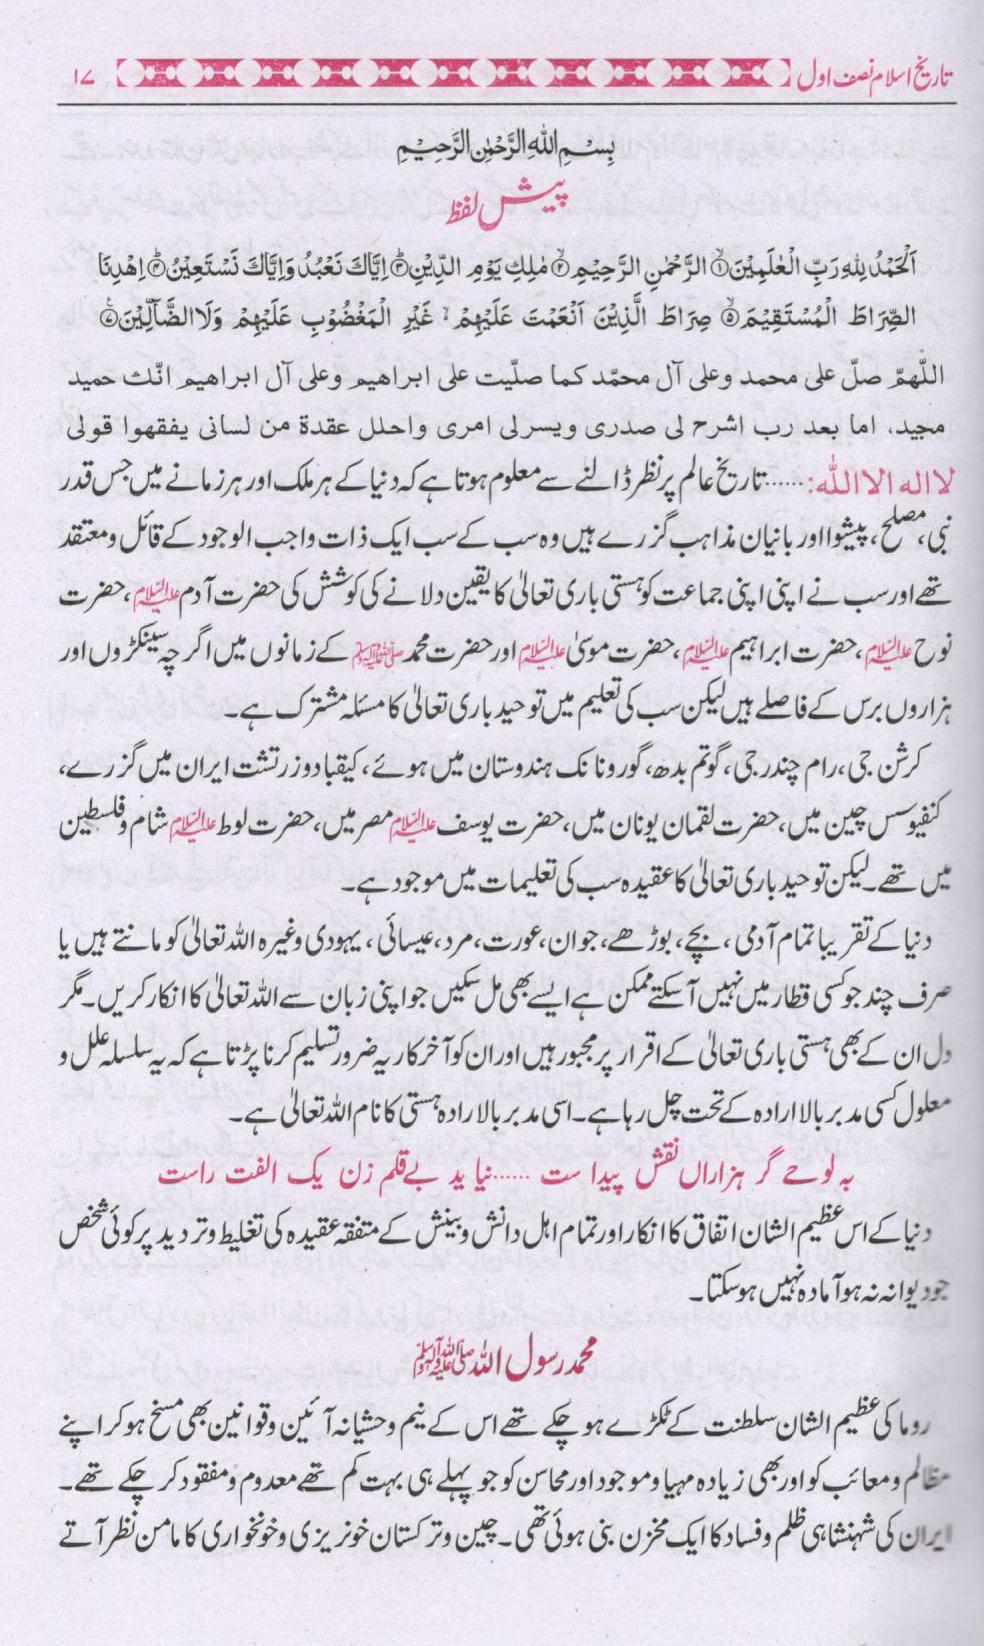 تاریخ اسلام نصف اول ۱۷
بِسْمِ اللهِ الرَّحْمٰنِ الرَّحِيْمِ
پیش لفظ
اَلْحَمْدُ لِلّٰهِ رَبِّ الْعٰلَمِيْنَ ﴿۱﴾ الرَّحْمٰنِ الرَّحِيْمِ ﴿۲﴾ مٰلِكِ يَوْمِ الدِّيْنِ ﴿۳﴾ اِيَّاكَ نَعْبُدُ وَاِيَّاكَ نَسْتَعِيْنُ ﴿۴﴾ اِهْدِنَا
الصِّرَاطَ الْمُسْتَقِيْمَ ﴿۵﴾ صِرَاطَ الَّذِيْنَ اَنْعَمْتَ عَلَيْهِمْ غَيْرِ الْمَغْضُوْبِ عَلَيْهِمْ وَلَا الضَّآلِّيْنَ ﴿۷﴾
اللّهمّ صلّ علی محمد وعلی آل محمّد کما صلّیت علی ابراهیم وعلی آل ابراهیم انّك حمید
مجید. اما بعد رب اشرح لی صدری ویسرلی امری واحلل عقدة من لسانی یفقهوا قولی
لا اله الا الله:......تاریخ عالم پر نظر ڈالنے سے معلوم ہوتا ہے کہ دنیا کے ہر ملک اور ہر زمانے میں جس قدر
نبی، مصلح، پیشوا اور بانیان مذاہب گزرے ہیں وہ سب کے سب ایک ذات واجب الوجود کے قائل و معتقد
تھے اور سب نے اپنی اپنی جماعت کو ہستی باری تعالیٰ کا یقین دلانے کی کوشش کی حضرت آدم علیہ السلام، حضرت
نوح علیہ السلام، حضرت ابراہیم علیہ السلام، حضرت موسیٰ علیہ السلام اور حضرت محمد ﷺ کے زمانوں میں اگرچہ سینکڑوں اور
ہزاروں برس کے فاصلے ہیں لیکن سب کی تعلیم میں توحید باری تعالیٰ کا مسئلہ مشترک ہے۔
کرشن جی، رام چندر جی، گوتم بدھ، گورونانک ہندوستان میں ہوئے، کیقباد و زرتشت ایران میں گزرے،
کنفیوسس چین میں، حضرت لقمان یونان میں، حضرت یوسف علیہ السلام مصر میں، حضرت لوط علیہ السلام شام و فلسطین
میں تھے۔ لیکن توحید باری تعالیٰ کا عقیدہ سب کی تعلیمات میں موجود ہے۔
دنیا کے تقریبا تمام آدمی، بچے، بوڑھے، جوان، عورت، مرد، عیسائی، یہودی وغیرہ اللہ تعالیٰ کو مانتے ہیں یا
صرف چند جو کسی قطار میں نہیں آسکتے ممکن ہے ایسے بھی مل سکیں جو اپنی زبان سے اللہ تعالیٰ کا انکار کریں۔ مگر
دل ان کے بھی ہستی باری تعالیٰ کے اقرار پر مجبور ہیں اور ان کو آخرکار یہ ضرور تسلیم کرنا پڑتا ہے کہ یہ سلسلہ علل و
معلول کسی مدبر بالا ارادہ کے تحت چل رہا ہے۔ اسی مدبر بالا رادہ ہستی کا نام اللہ تعالیٰ ہے۔
بہ لوحے گر ہزاراں نقش پیدا ست ...... نیا ید بے قلم زن یک الفت راست
دنیا کے اس عظیم الشان اتفاق کا انکار اور تمام اہل دانش و بینش کے متفقہ عقیدہ کی تغلیط و تردید پر کوئی شخص
جو دیوانہ نہ ہو آمادہ نہیں ہوسکتا۔
محمد رسول اللہ ﷺ
روما کی عظیم الشان سلطنت کے ٹکڑے ہوچکے تھے اس کے نیم وحشیانہ آئین و قوانین بھی مسخ ہوکر اپنے
مظالم و معائب کو اور بھی زیادہ مہیا و موجود اور محاسن کو جو پہلے ہی بہت کم تھے معدوم و مفقود کر چکے تھے۔
ایران کی شہنشاہی ظلم و فساد کا ایک مخزن بنی ہوئی تھی۔ چین و ترکستان خونریزی و خونخواری کا مامن نظر آتے